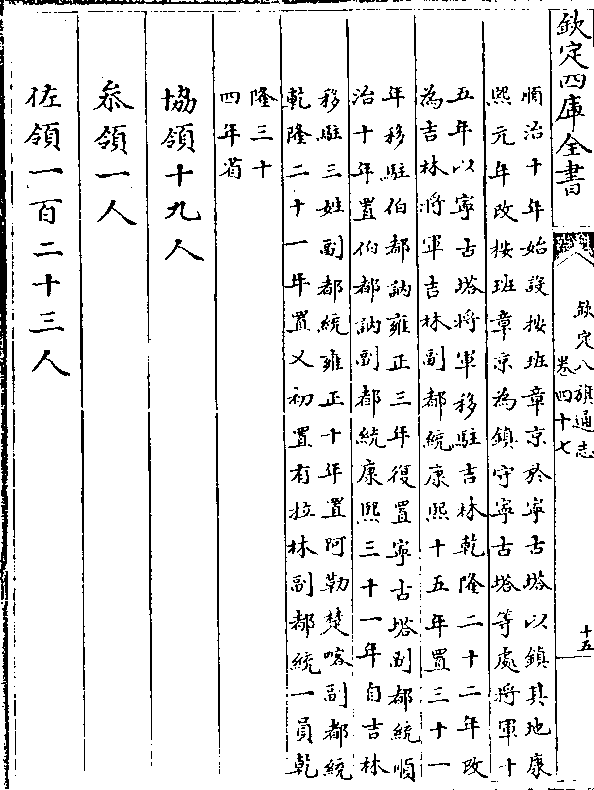 欽定四庫全書
欽定八旗通志
卷四十七
十五
順治十年始設按班章京於寧古塔以鎮其地康
熙元年改按班章京為鎮守寧古塔等處將軍十
五年以寧古塔將軍移駐吉林乾隆二十二年改
為吉林將軍吉林副都統康熙十五年置三十一
年移駐伯都訥雍正三年復置寧古塔副都統順
治十年置伯都訥副都統康熙三十一年自吉林
移駐三姓副都統雍正十年置阿勒楚喀副都統
乾隆二十一年置又初置有拉林副都統一員乾
隆三十
四年省
協領十九人
叅領一人
佐領一百二十三人